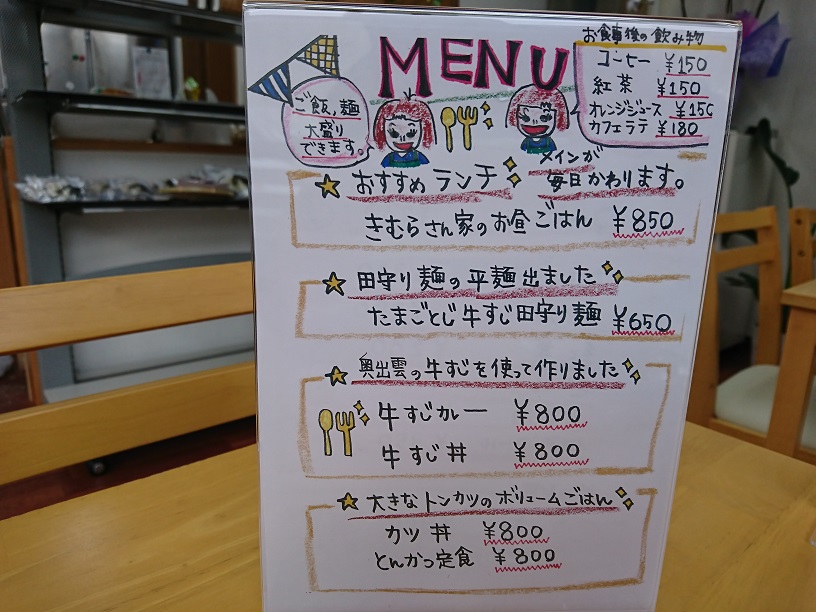 MENU
お食事後の飲み物
コーヒー ¥150
紅茶 ¥150
オレンジジュース ¥150
カフェラテ ¥180
ご飯、麺
大盛り
できます。
おすすめランチ
メインが
毎日かわります。
きむらさん家のお昼ごはん ¥850
田守り麺の平麺出ました
たまごとじ牛すじ田守り麺 ¥650
奥出雲の牛すじを使って作りました
牛すじカレー ¥800
牛すじ丼 ¥800
大きなトンカツのボリュームごはん
カツ丼 ¥800
とんかつ定食 ¥800